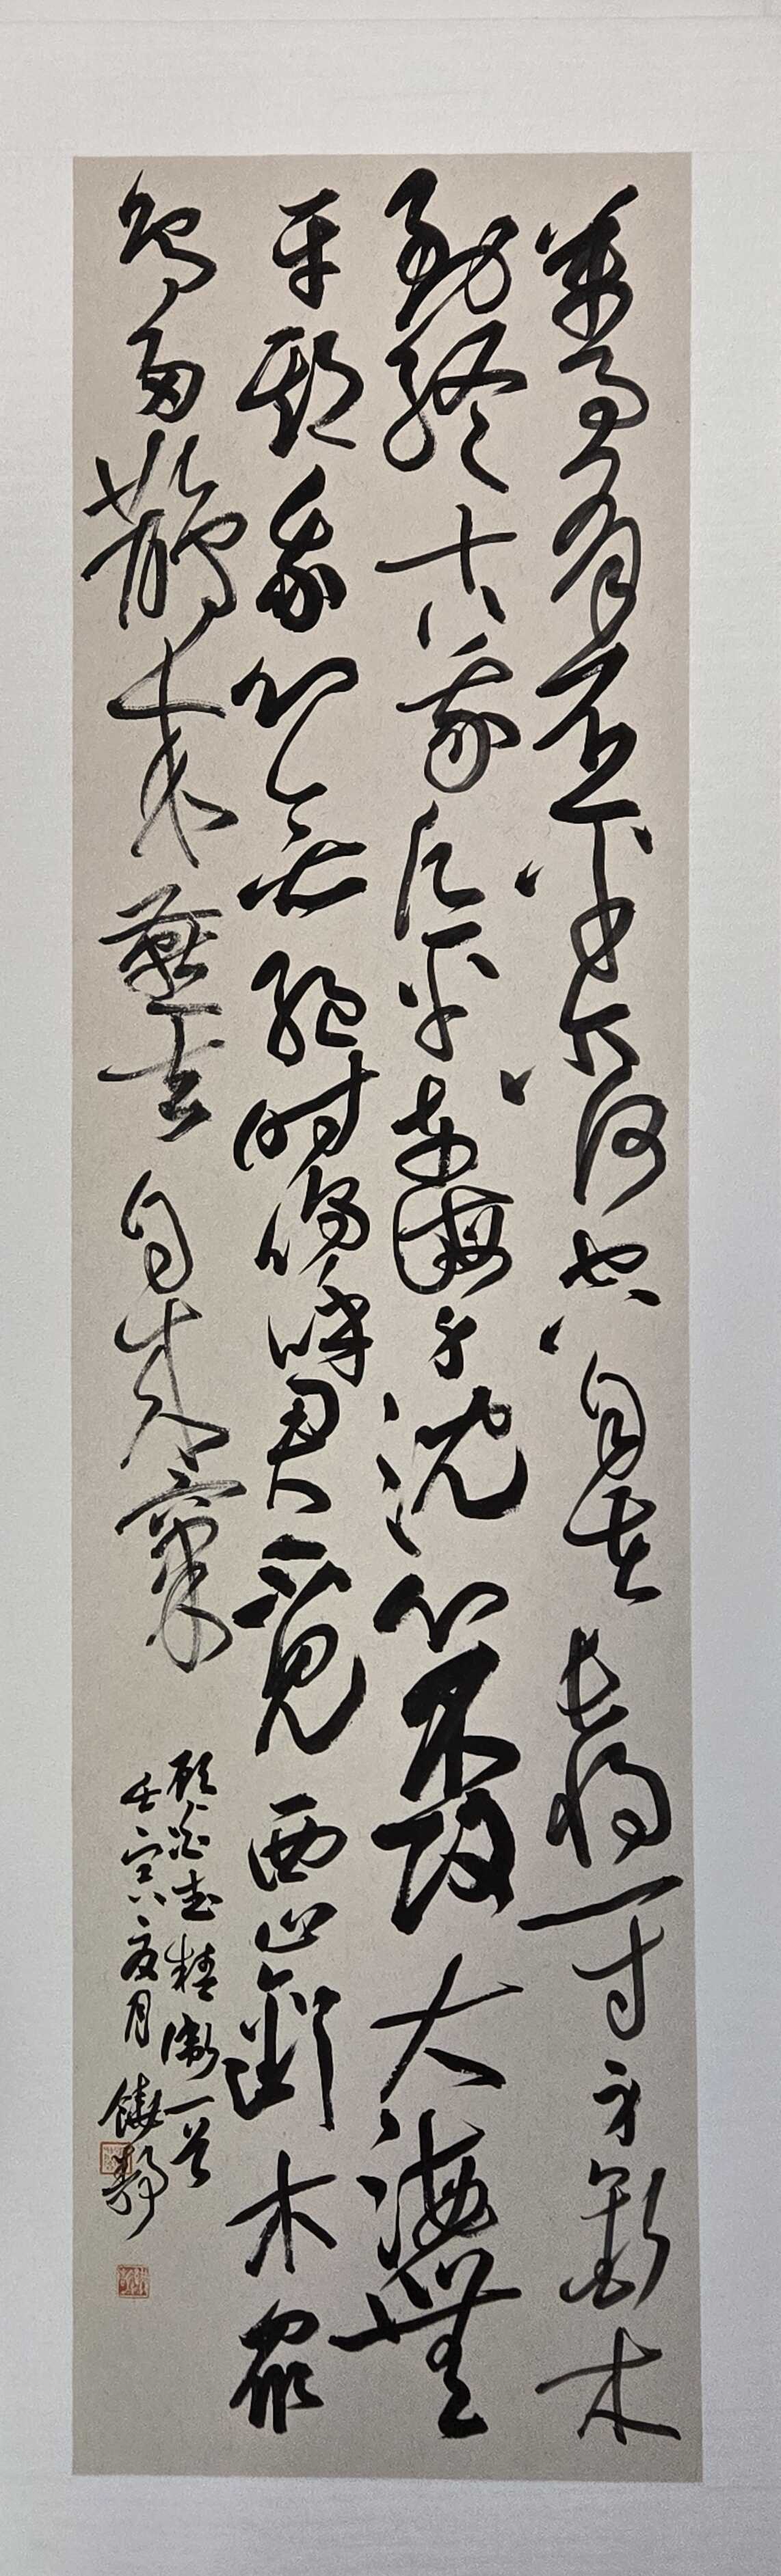 萬事有不平尔何空自苦長將一寸身銜木
到終古我願平東海身沈心不改大海無
平期我心無絕時嗚呼君不見西山銜木眾
鳥多鵲來燕去自成窠
顧炎武精衛一首
壬寅夏月